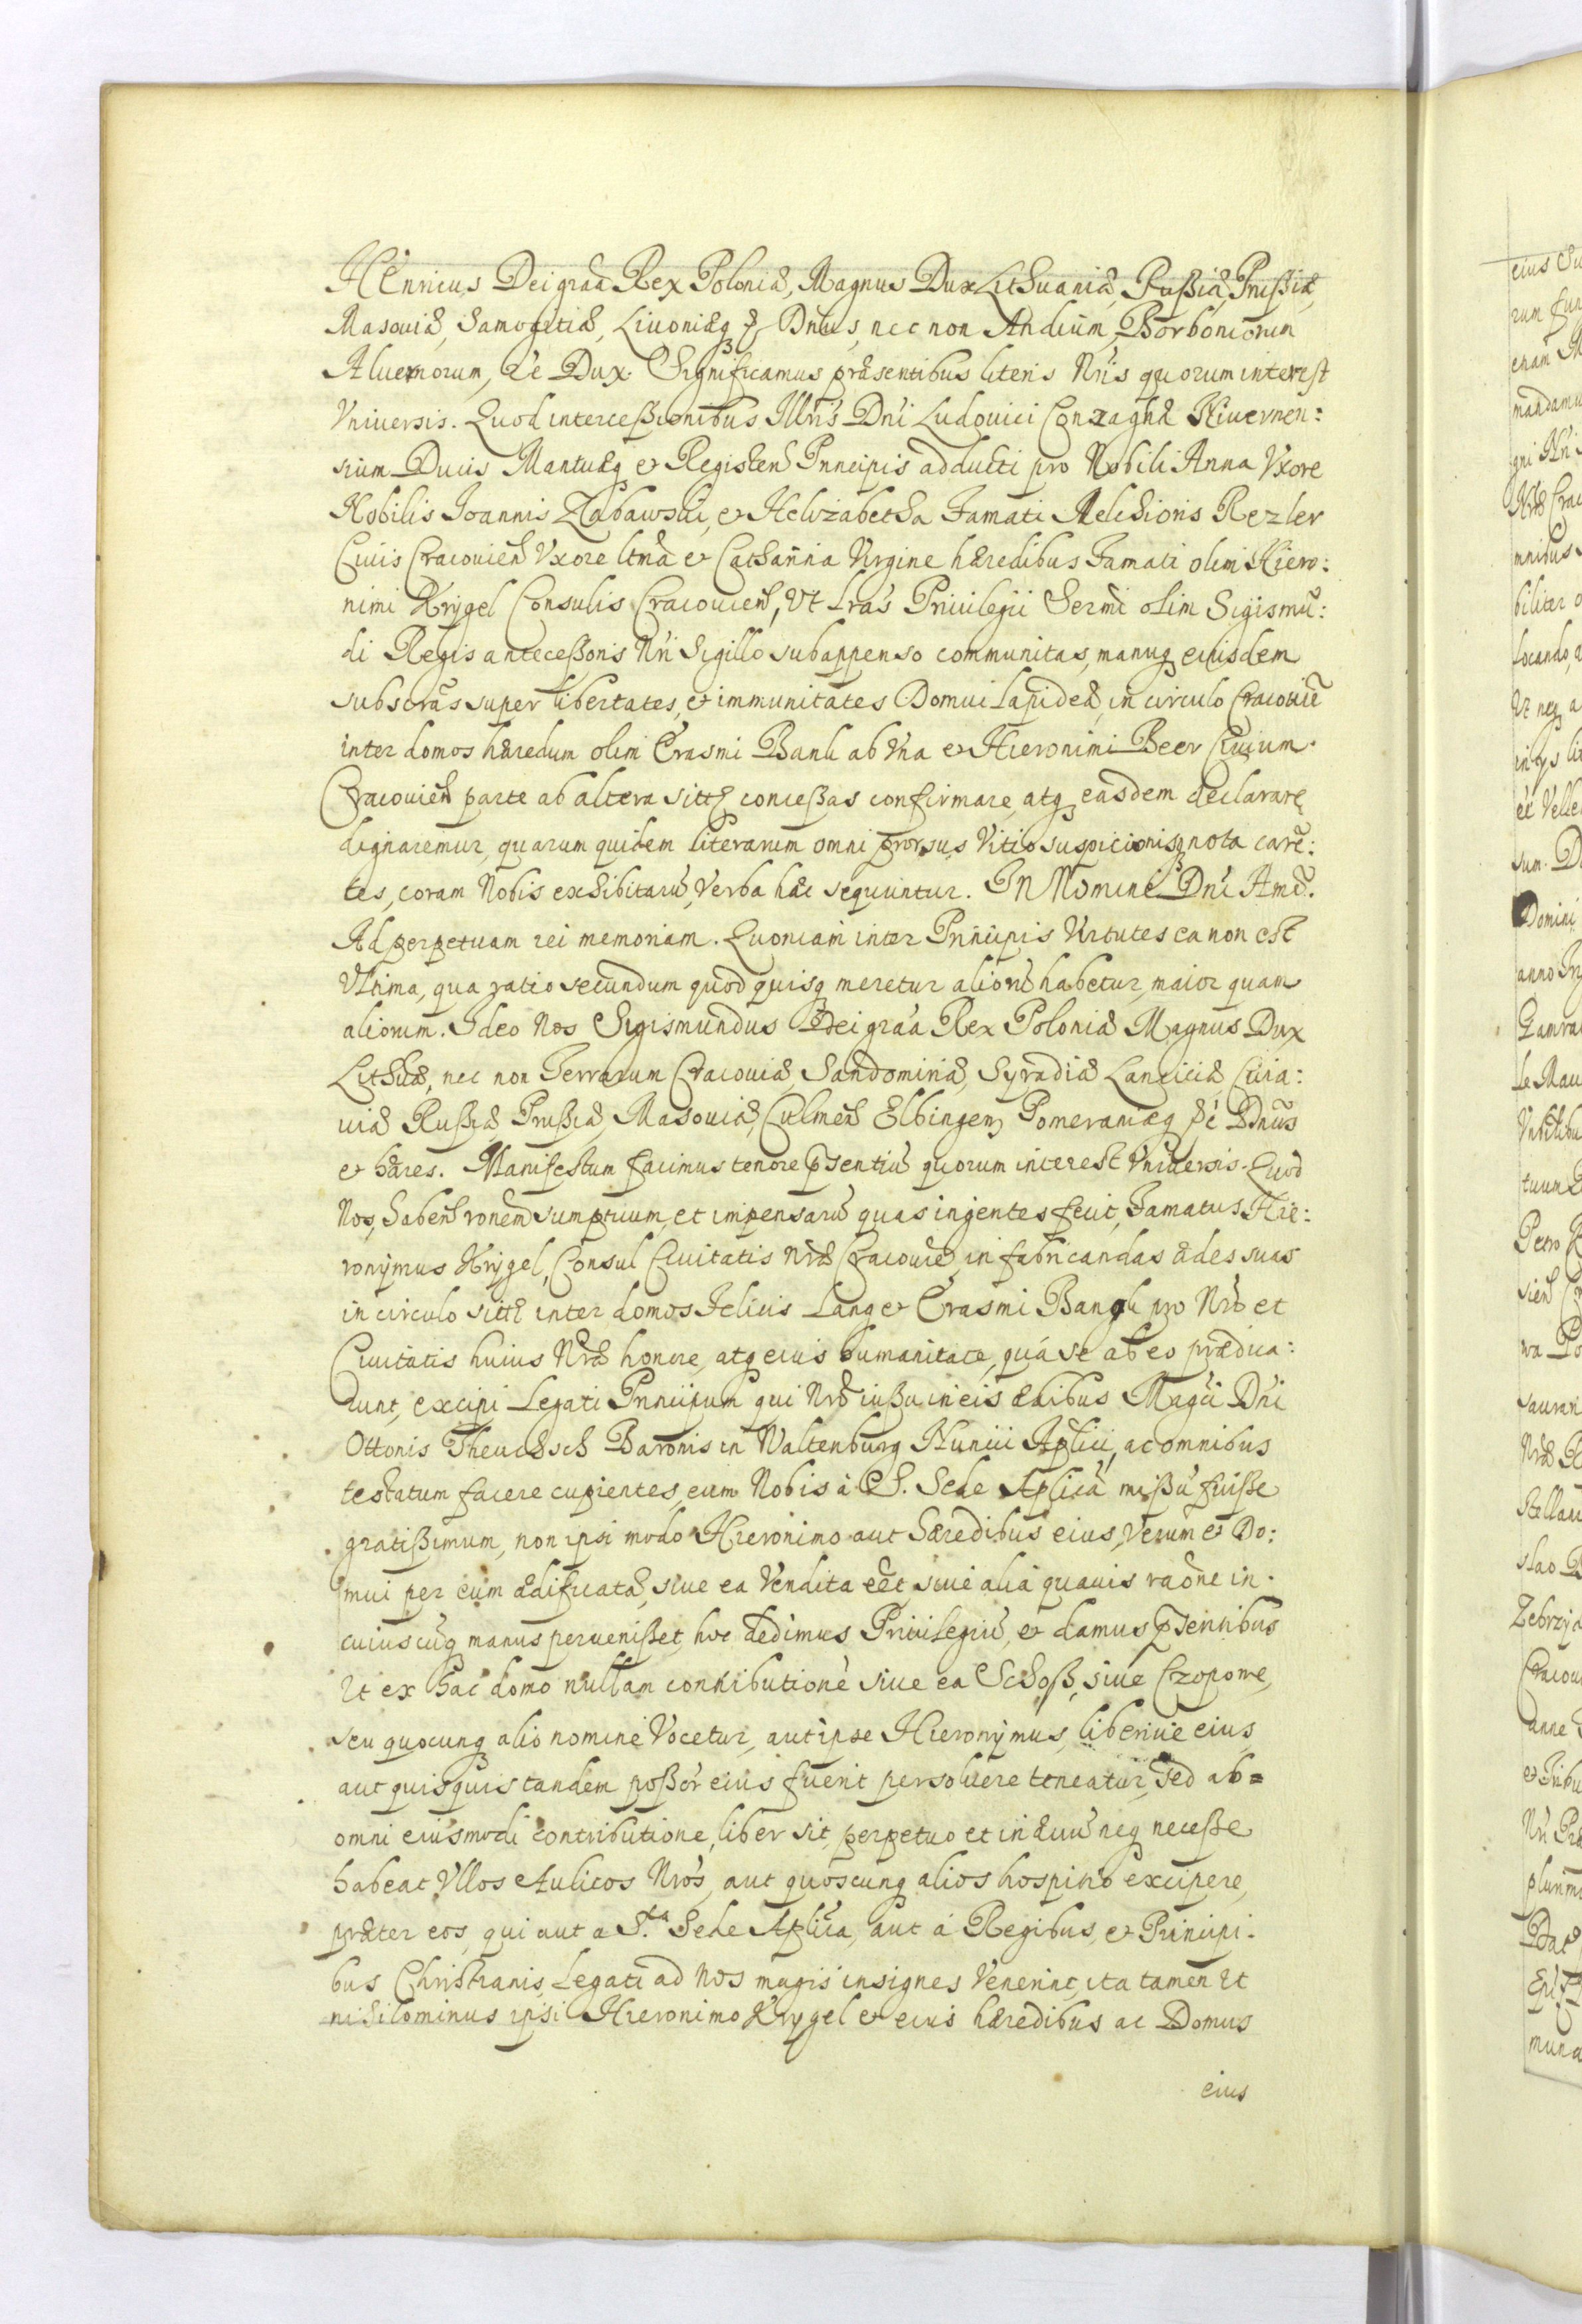 Henricus Dei graâ Rex Poloniæ, Magnus Dux Lithuaniæ, Rußiæ, Prußiæ,
Masouiæ, Samogitiæ, Liuoniæq & Dnus, nec non Andium, Borboniorum
Aluernorum, &c Dux. Significamus præsentibus literis Nris quorum interest
Vniuersis. Quod interceßionibus Illris Dni Ludouici Gonzaghæ Niuernen:
sium Ducis Mantuæq et Registen Principis adducti pro Nobili Anna Vxore
Nobilis Joannis Zabawski, et Helizabetha Famati Melchioris Rezler
Ciuis Cracouien Vxore ltma et Catharina Virgine hæredibus Famati olim Hiero:
nimi Krÿgel Consulis Cracouien, Vt Lras Priuilegii Sermi olim Sigismū:
di Regis anteceßoris Nri Sigillo subappenso communitas, manuq eiusdem
subscras super libertates, et immunitates Domui lapideæ, in circulo Cracouiē
inter domos hæredum olim Erasmi Bank ab Vna et Hieronimi Beer Ciuium
Cracouien parte ab altera sittæ conceßas confirmare, atq easdem declarare
dignaremur, quarum quidem literarum omni prorsus Vitio suspicionisq nota carē:
tes, coram Nobis exhibitarū, Verba hæc sequuntur. IN Nomine Dni Amē.
Ad perpetuam rei memoriam. Quoniam inter Principis Virtutes ea non est
Vltima, qua ratio secundum quod quisq meretur aliorū habetur, maior quam
aliorum. Ideo Nos Sigismundus Dei graâ Rex Poloniæ Magnus Dux
Lithuæ, nec non Terrarum Cracouiæ, Sandomiriæ, Syradiæ Lanciciæ Cuia:
uiæ Rußiæ Prußiæ, Masouiæ, Culmen Elbingen Pomeraniæq &c Dnus
et hæres. Manifestum facimus tenore psentiū quorum interest Vniuersis. Quod
Nos, habentes ronem sumptuum, et impensarū quas ingentes fecit, Famatus Hie:
ronÿmus Krÿgel, Consul Ciuitatis Nræ Cracouiē, in fabricandas ædes suas
in circulo sittæ inter domos Felicis Lang et Erasmi Bank pro Nro et
Ciuitatis huius Nræ honore, atq eius humanitate, quá se ab eo prædica:
dunt, excipi Legati Principum qui Nrō iußu in eis ædibus Magci Dni
Ottonis Theuchsch Baronis in Waltenburg Nuncii Aplici, ac omnibus
testatum facere cupientes, eum Nobis à S. Sede Aplica mißū fuiße
gratißimum, non ipsi modo Hieronimo aut hæredibus eius, Verum et Do:
mui per eum ædificatæ, siue ea Vendita eēt, siue alia quauis raōne in
cuiuscūq manus peruenißet, hoc dedimus Priuilegiū, et damus psentibus
Vt ex hac domo nullam contributionē siue ea Schoß, siue Czopowe,
seu quocunq alio nomine Vocetur, aut ipse Hieronÿmus, liberiue eius,
aut quisquis tandem poßor eius fuerit persoluere teneatur, sed ab=
omni eiusmodi contributione, liber sit, perpetuo et in æuū neq neceße
habeat Vllos Aulicos Nros, aut quoscunq alios hospitio excipere,
præter eos, qui aut a S.ta Sede Aplica, aut á Regibus, et Principi-
bus Christianis, Legati ad Nos magis insignes Venerint, ita tamen Vt
nihilominus ipsi Hieronimo Krygel et eius hæredibus ac Domus
eius